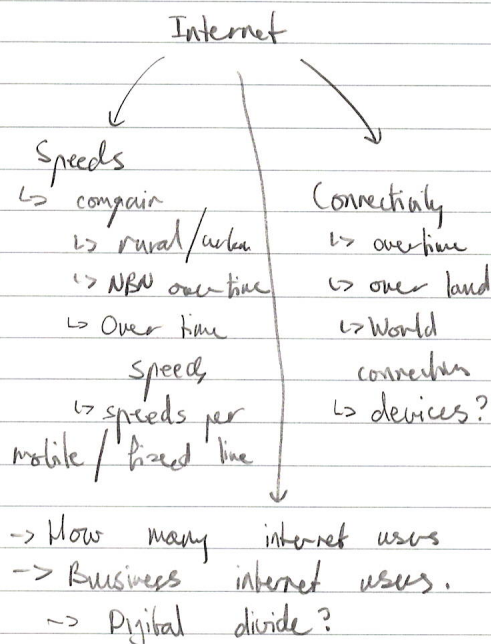 Internet
Speeds
↳ compair
↳ rural/urban
↳ NBN over time
↳ Over time
speeds
↳ speeds per
mobile / fixed line
Connectivity
↳ overtime
↳ over land
↳ World
connection
↳ devices?
-> How many internet users
-> Buisiness internet users.
-> Digital divide?